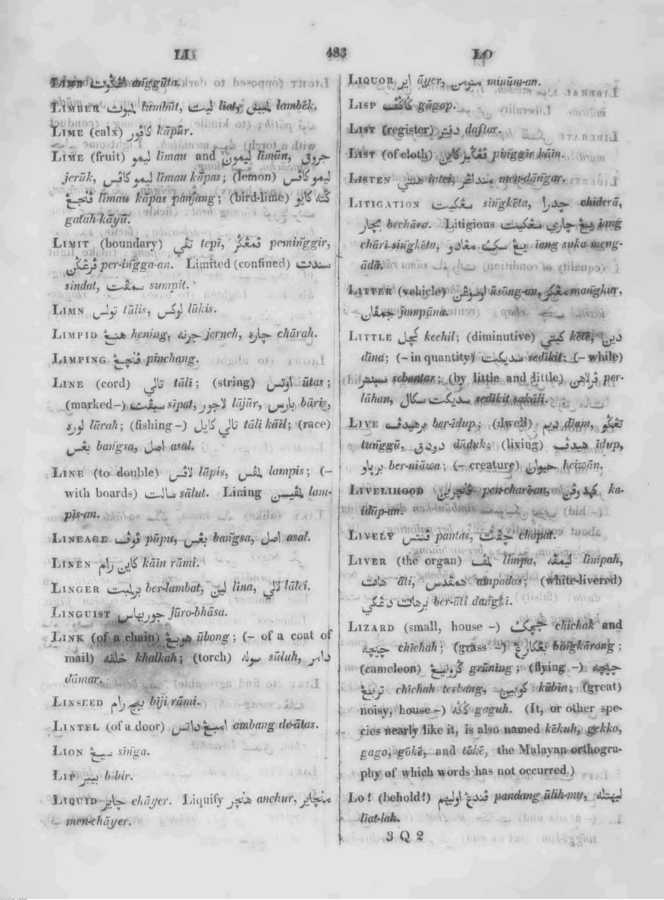 LI 483 LO
LIMBER لمبوت lĭmbūt, ليت liat, لمبيق lambĕk.
LIME (calx) كافور kāpūr.
LIME (fruit) ليمو līmau and ليمون līmūn, جروق
jerūk, ليمو كافس līmau kāpas; (lemon) ليمو كافس
فنجڠ līmau kāpas panjang; (bird-lime) گته كايو
gatah kāyū.
LIMIT (boundary) تفي tepī, فمڠگر peminggir,
per-ingga-an. Limited (confined) سندت
sindat, سمفت sumpit.
LIMN تولس tūlis, لوكس lūkis.
LIMPID هنيڠ hening, جرنه jerneh, چاره chārah.
LIMPING فنچڠ pinchang.
LINE (cord) تالي tāli; (string) اوتس ūtas;
(marked–) سيفت sīpat, لاجور lājūr, بارس bāris,
لوره lūrah; (fishing–) تالي كايل tāli kāīl; (race)
بڠس bangsa, اصل asal.
LINE (to double) لافس lāpis, لمفس lampis; (–
with boards) سالت sālut. Lining لمفيسن lam-
pis-an.
LINEAGE فوفو pūpu, بڠس bangsa, اصل asal.
LINEN كاين رام kāin rāmi.
LINGER برلمبت ber-lambat, لين lina, لالي lālei.
LINGUIST جوربهاس jūro-bhāsa.
LINK (of a chain) ūbong; (– of a coat of
mail) خلقه khalkah; (torch) سوله sūluh, دامر
dāmar.
LINSEED بيج رام bīji rāmi.
LINTEL (of a door) امبڠ داتس ambang de-ātas.
LION سيڠ singa.
LIP بيبر bībir.
LIQUID چاير chāyer. Liquify هنچر anchur, منچاير
men-chāyer.
LIQUOR اير āyer, minūm-an.
LISP گاگف gāgap.
LIST (register) دفتر daftar.
LIST (of cloth) فڠگيركاين pinggir kāin.
LISTEN intei, مندڠر men-dāngar.
LITIGATION سڠكيت singkēta, چدرا chiderā,
بچار bechāra. Litigious يڠ چاري سڠكيت iang
chāri singkēta, يڠ سك مڠادو iang suka meng-
ādū.
LITTER (vehicle) اوسوڠن ūsōng-an, mangkur,
جمفان jampāna.
LITTLE كچل kechil; (diminutive) كيتي kētē, دين
dīna; (– in quantity) سديكت sedikit; (– while)
سبنتر sebantar; (by little and little) فرلاهن per-
lāhan, سديكت سكال sedikit sakāli.
LIVE برهيدف ber-īdup; (dwell) ديم diam, تڠگو
tunggū, دودق dūduk; (living) هيدف īdup,
برنياو ber-niāwa; (– creature) حيوان heiwān.
LIVELIHOOD فنچارين pen-charian, كهدوفن ka-
idūp-an.
LIVELY فنتس pantas, چفت chapat.
LIVER (the organ) لمف limpa, ليمفه limpah,
هات āti, همفدس ampadas; (white-livered)
برهات دڠكي ber-āti dangki.
LIZARD (small, house –) چيچك chichak and
چيچه chichah; (grass –) بڠكارڠ bangkārong;
(cameleon) گرونيڠ grūning; (flying –) چيچه
تربڠ chichah terbang, كوبين kūbin; (great)
noisy, house –) گگه gaguh. (It, or other spe-
cies nearly like it, is also named kēkuh, gekko,
gago, gōkē, and tōkē, the Malayan orthogra-
phy of which words has not occurred.)
LO! (behold!) فندڠ اوليهم pandang ūlih-mu, ليهتله
līat-lah.
3 Q 2